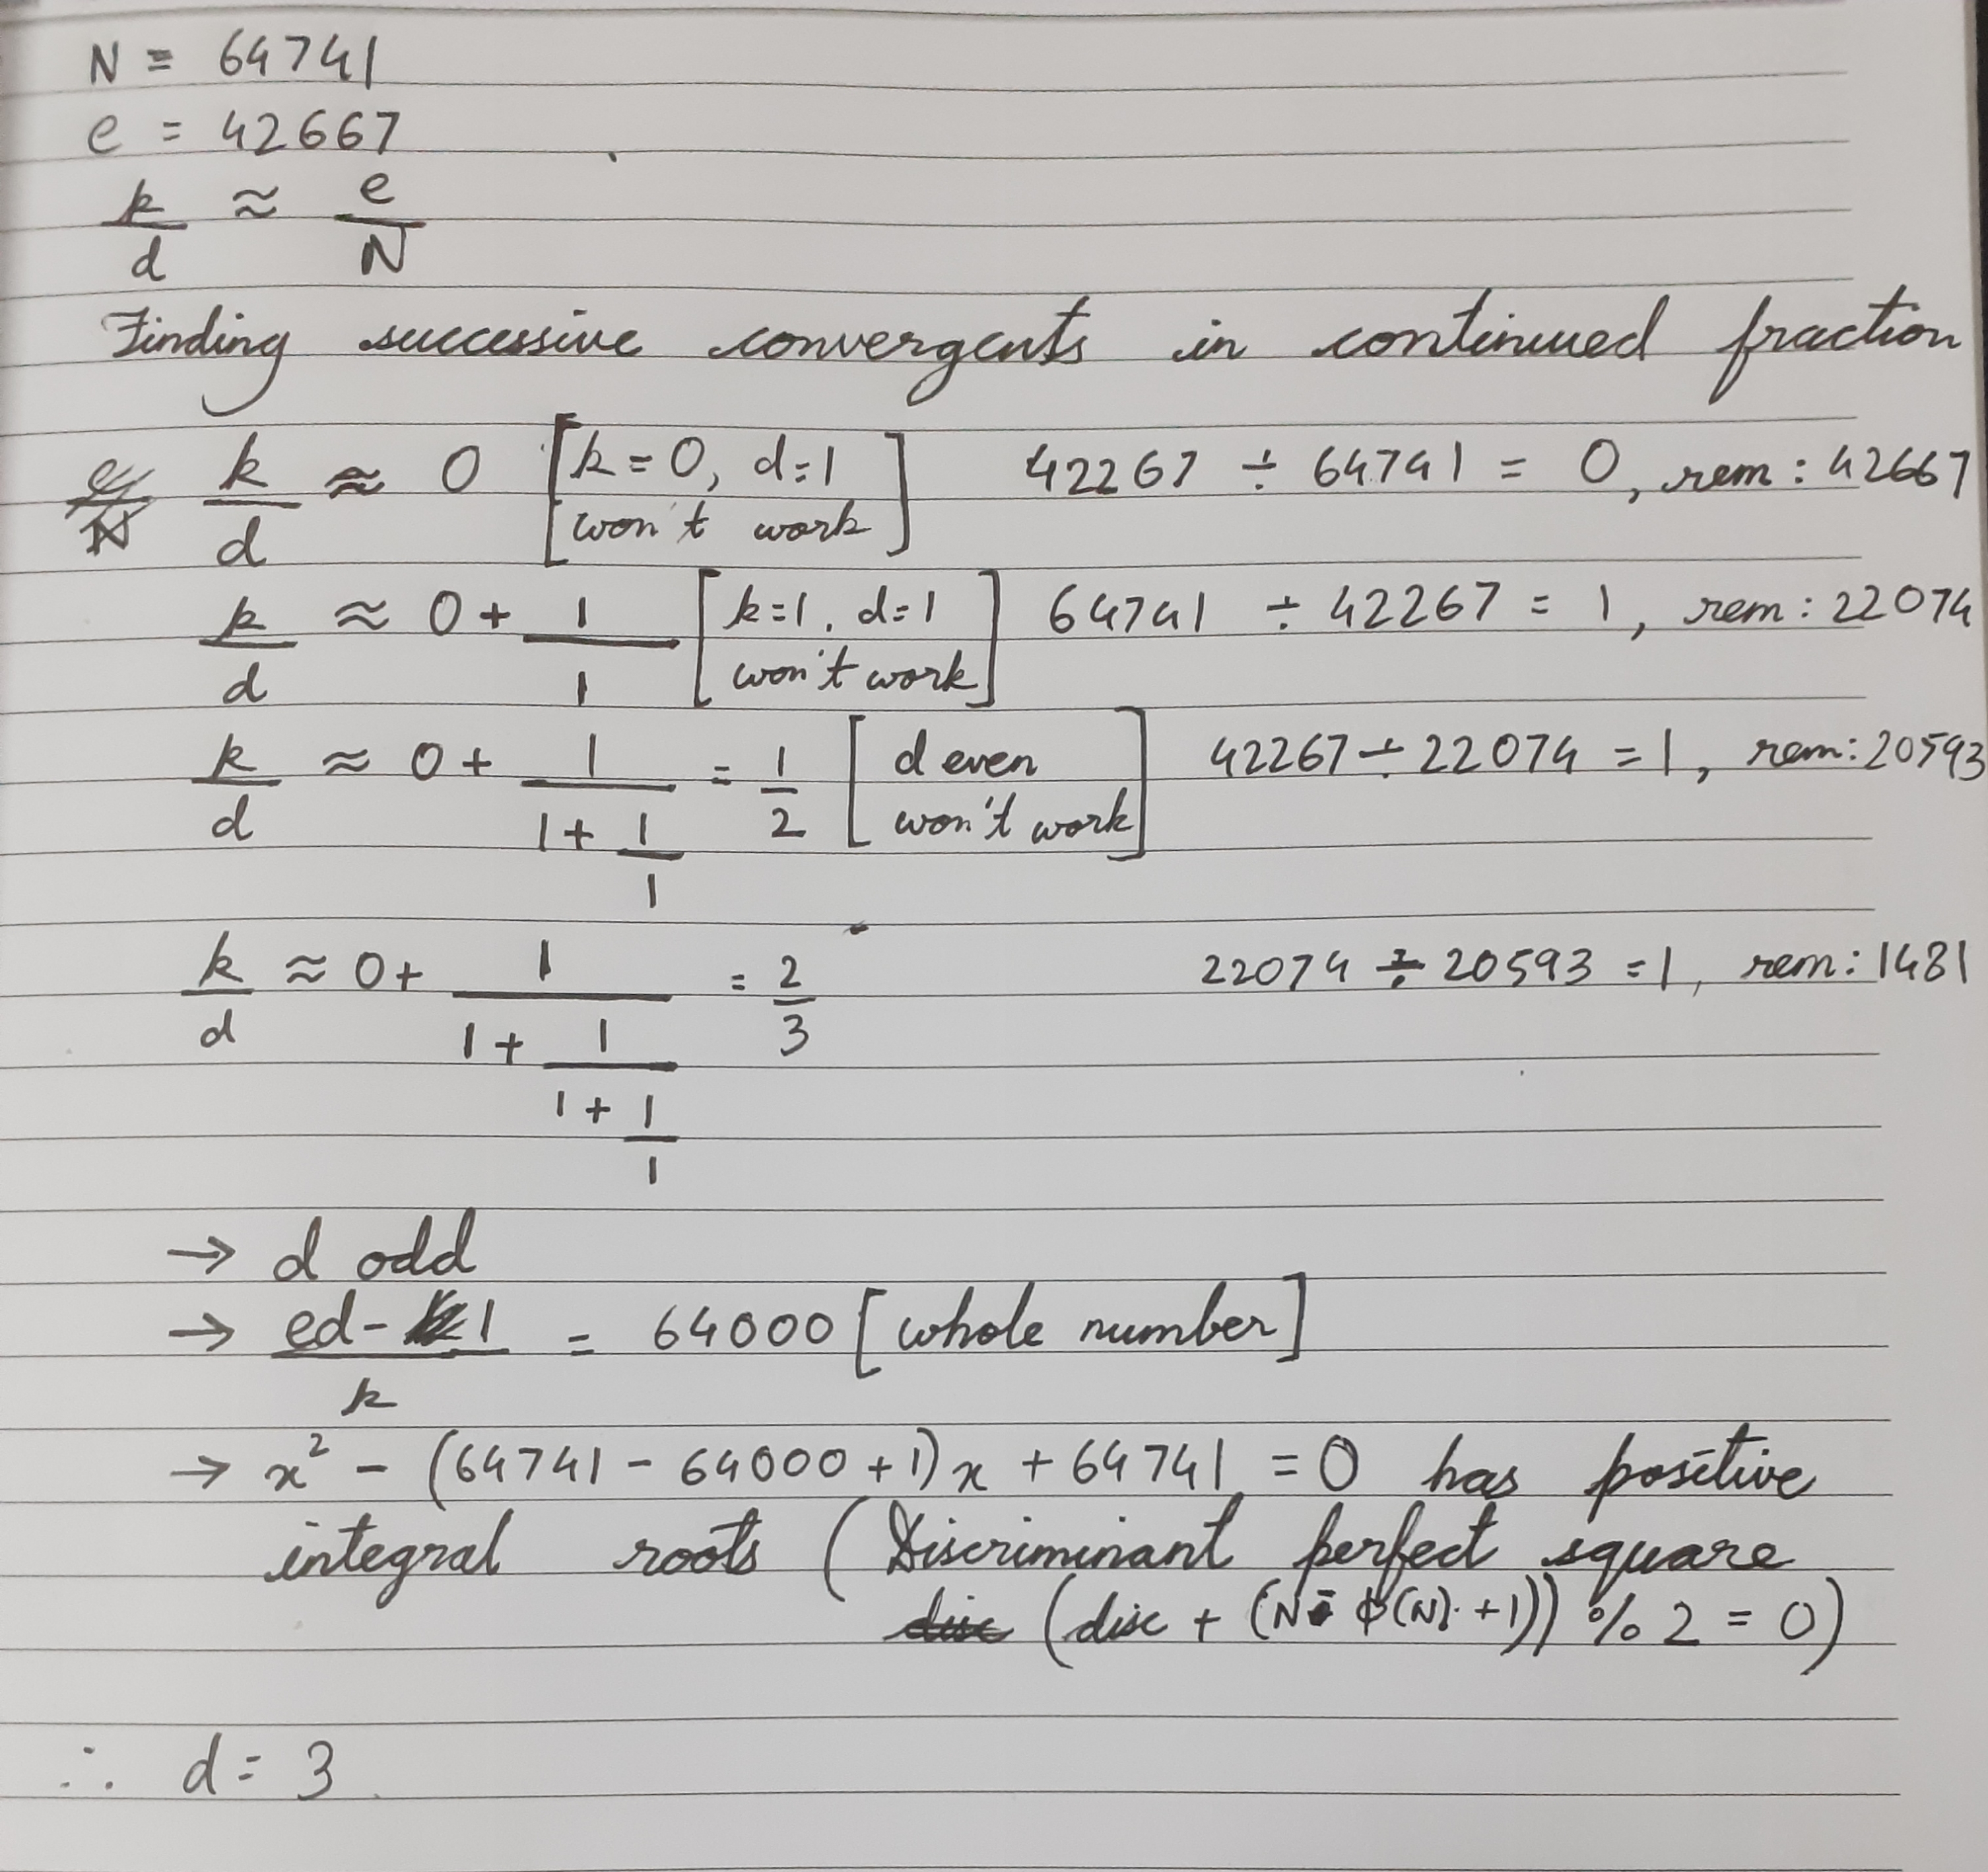 N = 64741
e = 42667
k/d ≈ e/N
Finding successive convergents in continued fraction
e/N k/d ≈ 0 [k=0, d=1 won't work] 42267 ÷ 64741 = 0, rem: 42667
k/d ≈ 0 + 1/1 [k=1, d=1 won't work] 64741 ÷ 42267 = 1, rem: 22074
k/d ≈ 0 + 1/(1 + 1/1) = 1/2 [d even won't work] 42267 ÷ 22074 = 1, rem: 20593
k/d ≈ 0 + 1/(1 + 1/(1 + 1/1)) = 2/3 22074 ÷ 20593 = 1, rem: 1481
→ d odd
→ (ed - 1)/k = 64000 [whole number]
→ x² - (64741 - 64000 + 1)x + 64741 = 0 has positive
integral roots (Discriminant perfect square
disc (disc + (N - φ(N) + 1)) % 2 = 0)
∴ d = 3